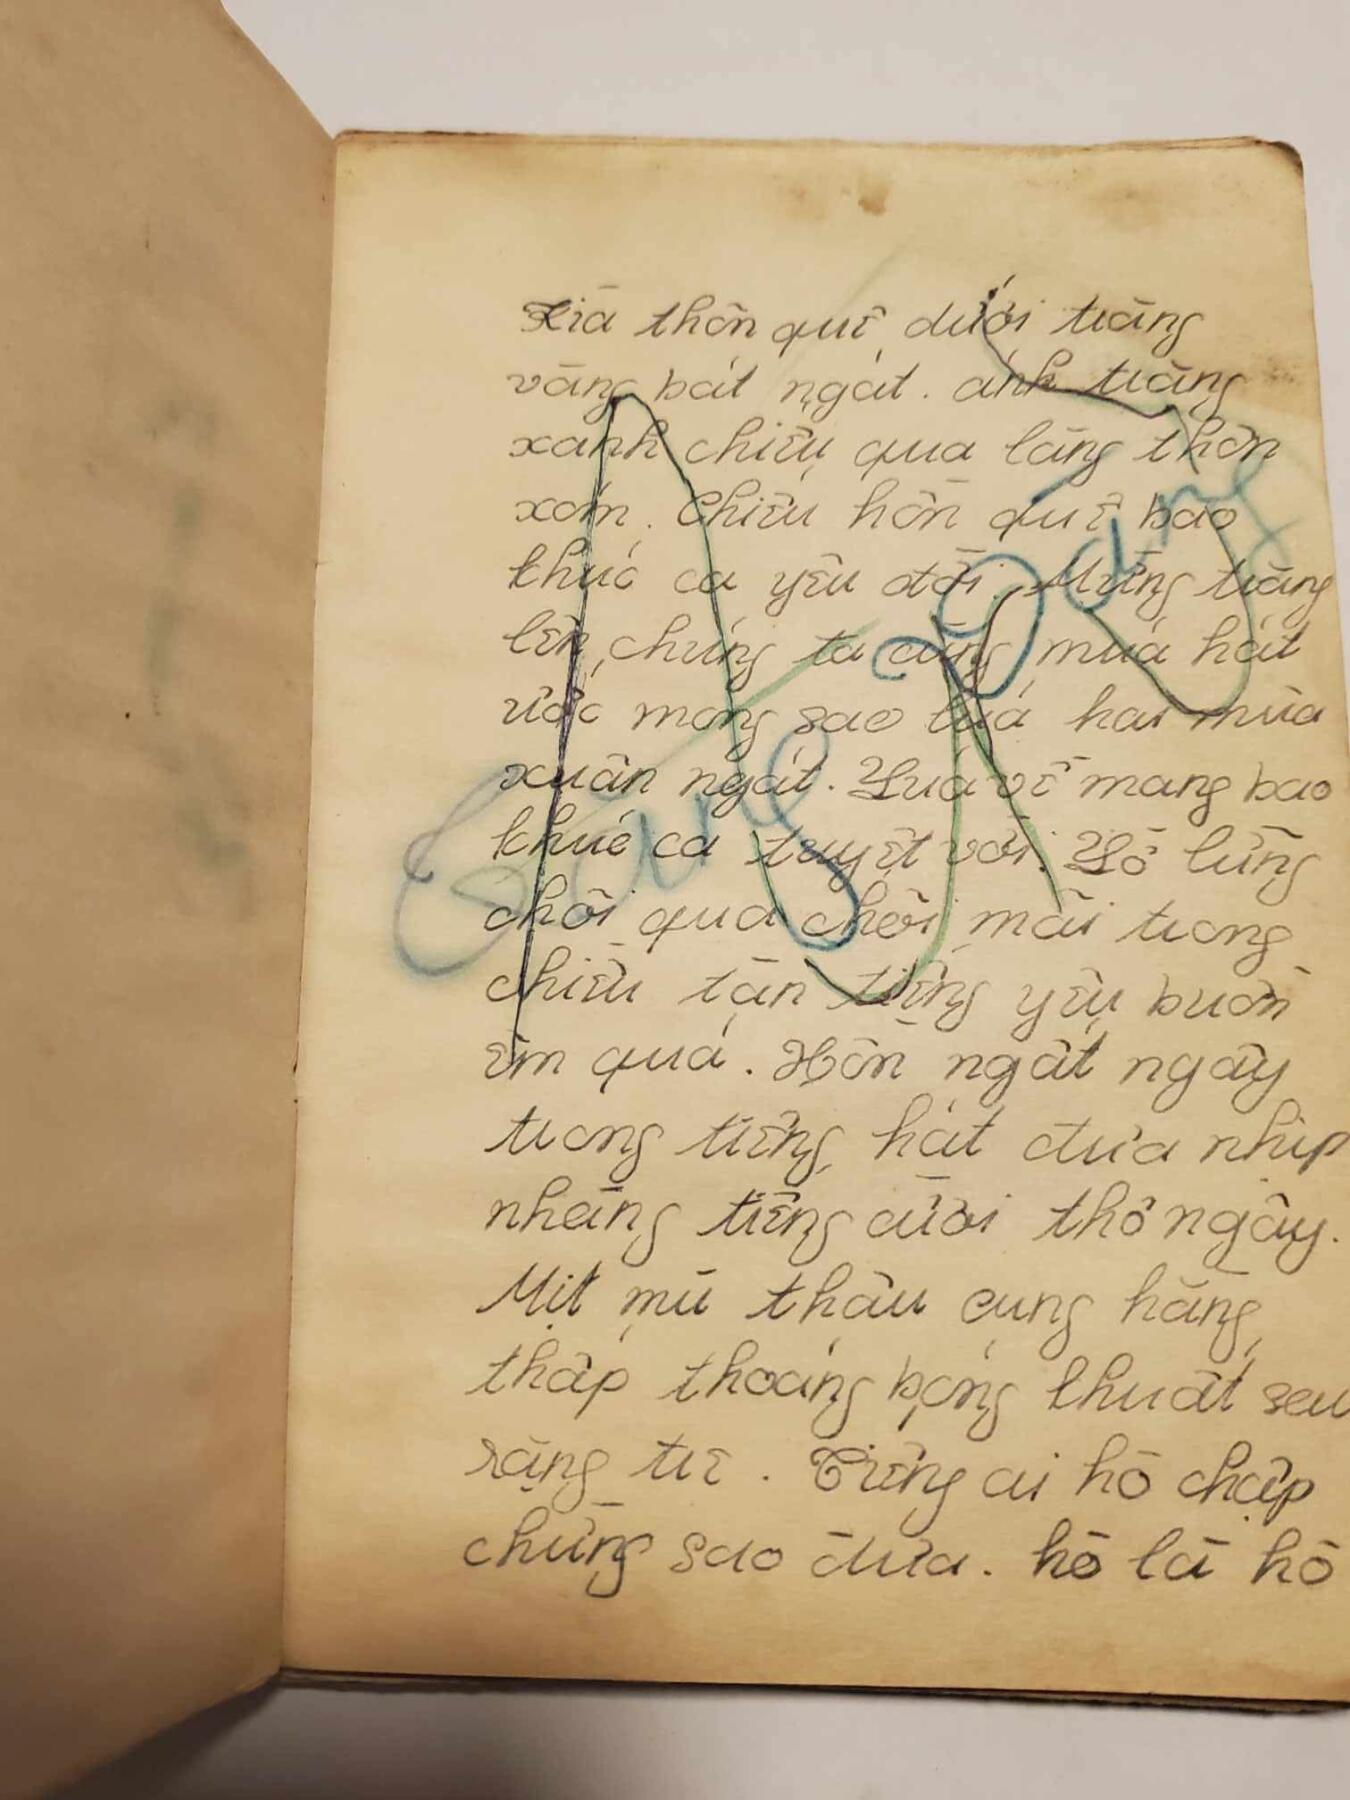 Kìa thôn quê dưới trăng
vàng bát ngát. ánh trăng
xanh chiếu qua làng thôn
xóm. Chiều hồn quê bao
khúc ca yêu đời. Mừng trăng
lên, chúng ta cùng múa hát
ước mong sao lúa hai mùa
xuân ngát. Lúa về mang bao
khúc ca tuyệt vời. Lố lừng
chối qua chối mãi trong
chiều tàn tiếng yêu buồn
êm quá. Hồn ngất ngây
trong tiếng hát đưa nhịp
nhàng tiếng cười thơ ngây.
Mịt mù thâu cung hằng
thấp thoáng bóng khuất sau
rặng tre. Tiếng ai hò chập
chùng sao đưa. hò là hò
Băng
Quang